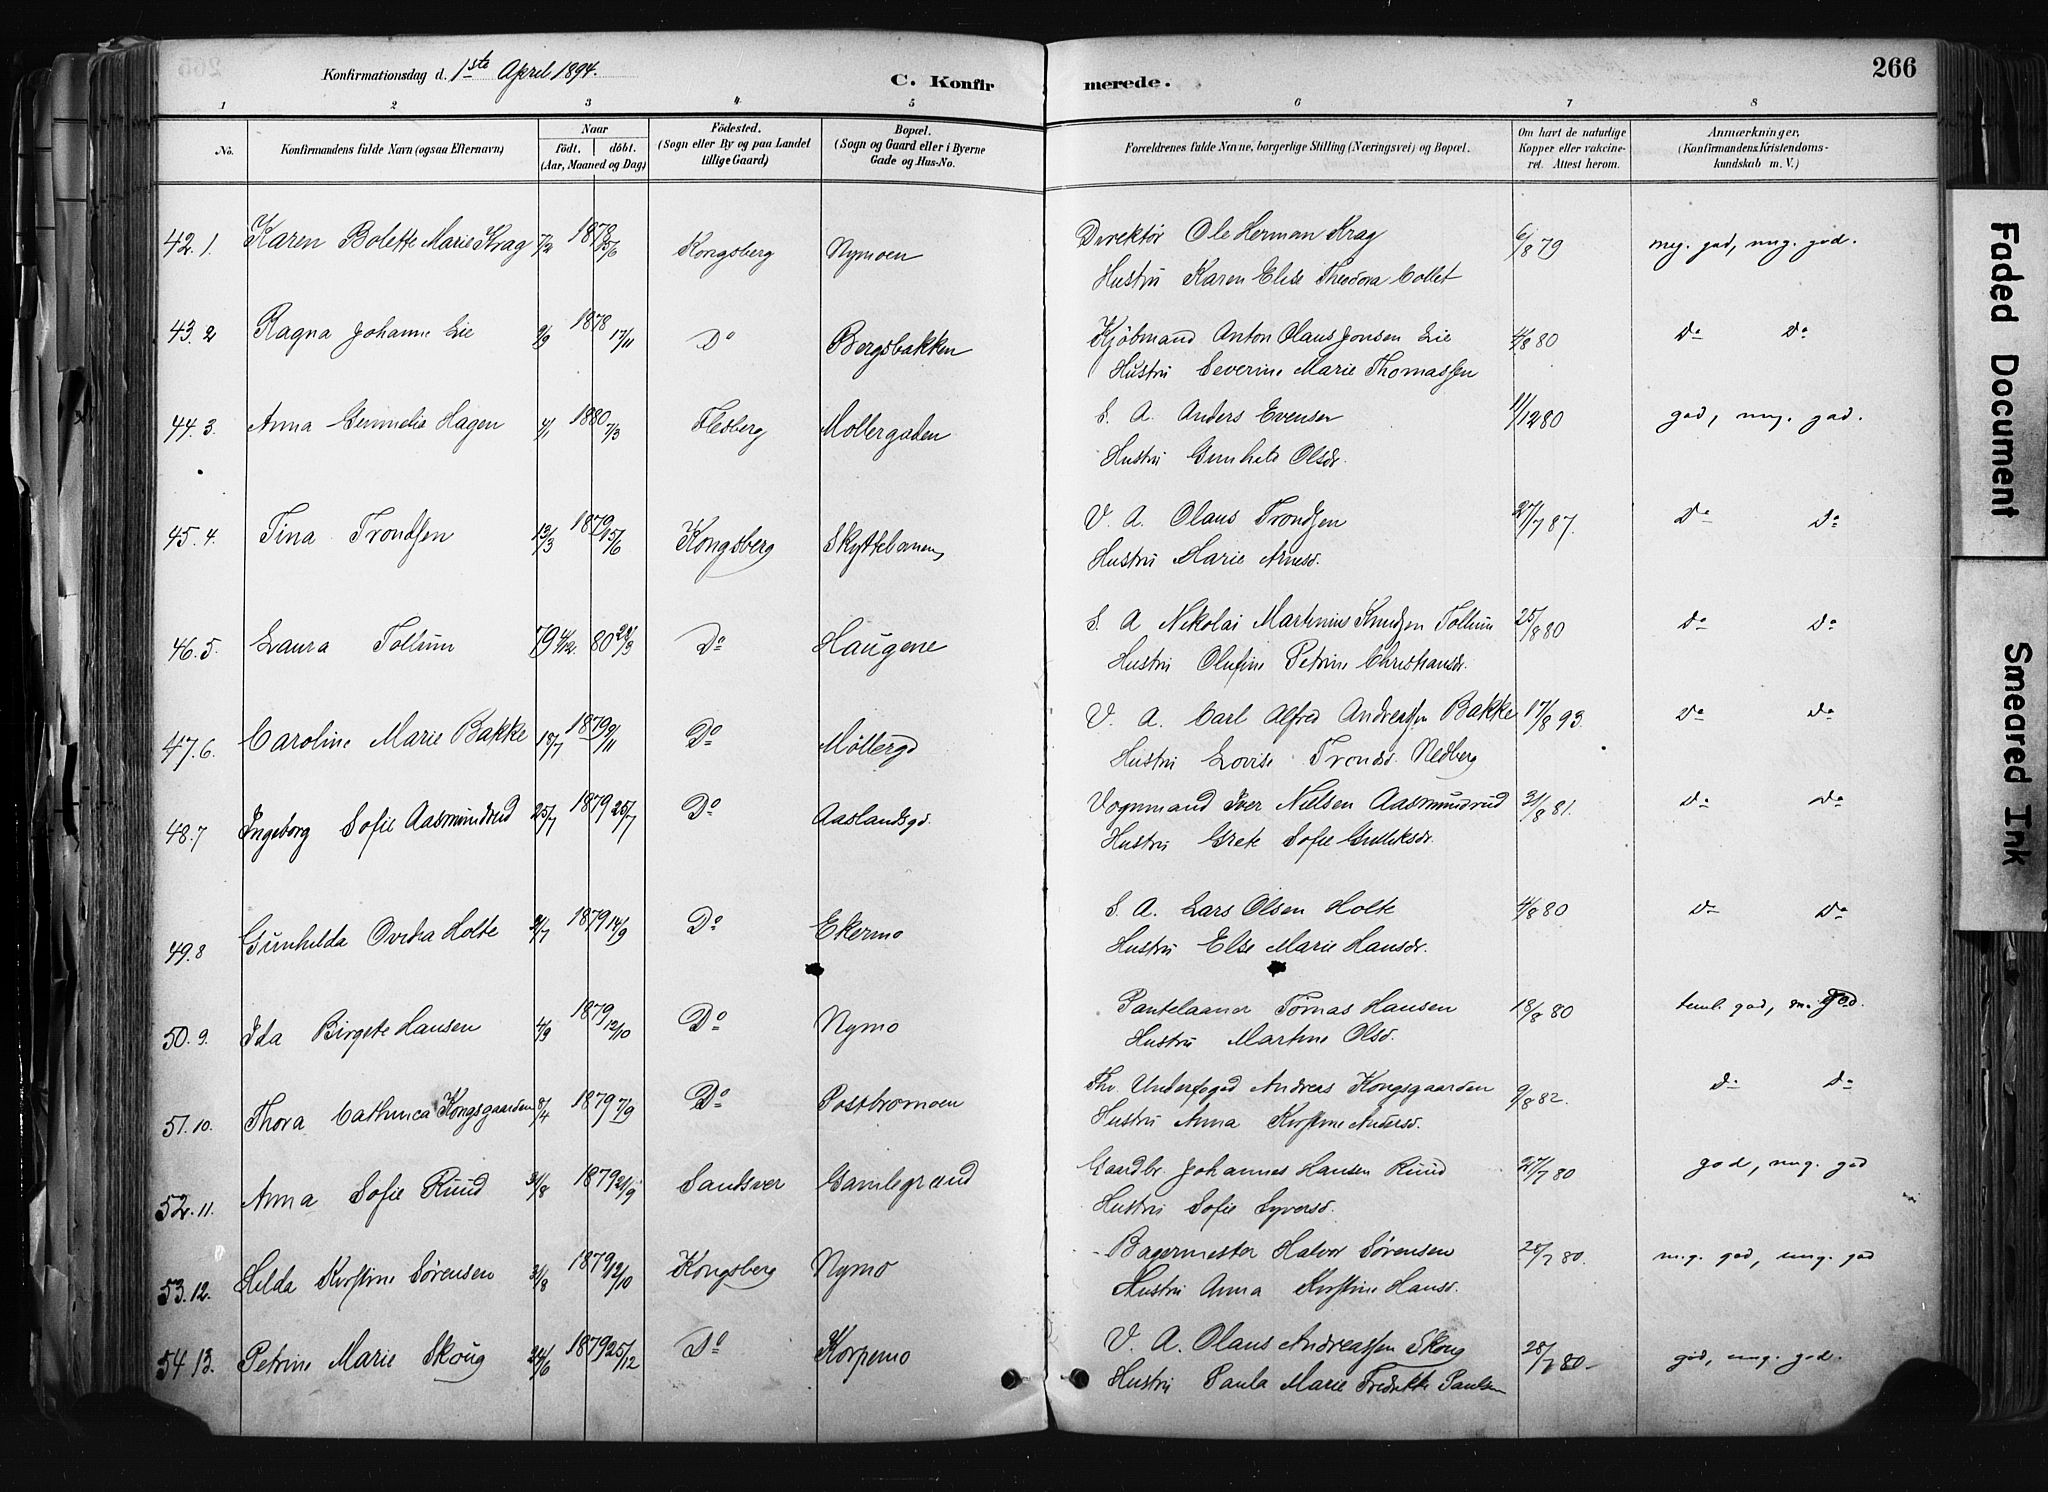 Konfirmationsdag d. 1ste April 1894. C. Konfirmerede. 266
1 2 3 4 5 6 7 8
No. Konfirmandens fulde Navn (ogsaa Efternavn) Naar født. døbt. (Aar, Maaned og Dag) Födested. (Sogn eller By og paa Landet tillige Gaard) Bopæl. (Sogn og Gaard eller i Byerne Gade og Hus-No. Forældrenes fulde Navne, borgerlige Stilling (Næringsvei) og Bopæl. Om havt de naturlige Kopper eller vakcineret. Attest herom. Anmærkninger, (Konfirmandens Kristendomskundskab m. V.)
42. 1. Karen Bolette Marie Krag 7/2 1879 15/6 Kongsberg Nymoen Direktör Ole Herman Krag 6/8 79 meg. god, mg. god.
Hustru Karen Elise Theodora Collet
43. 2 Ragna Johanne Lie 9/9 1878 17/11 Do Bergsbakken Kjöbmand Anton Olaus Jonsen Lie 4/8 80 Do Do
Hustru Severine Marie Thomassen
44. 3. Anna Gunnelia Hagen 4/1 1880 7/3 Flesberg Møllergaden S. A. Anders Evensen 11/12 80 god, mg. god.
Hustru Gunhild Olsdr.
45. 4. Tina Trondsen 13/3 1879 15/6 Kongsberg Skyttebanen V. A. Olaus Trondsen 27/7 87. Do Do
Hustru Marie Arnesd.
46. 5. Laura Tollum 79 4/12. 80 28/3 Do Haugene S. A Nikolai Martinius Knudsen Tollum 25/8 80 Do Do
Hustru Olufine Petrine Christiansdr.
47. 6. Caroline Marie Bakke 18/7 1879 9/11 Do Møllergd V. A. Carl Alfred Andreassen Bakke 17/8 93. Do Do
Hustru Lovise Trondsd. Nedberg
48. 7 Ingeborg Sofie Aasmundrud 25/7 1879 25/7 Do Aaslandsgd. Vognmand Iver Nielsen Aasmundrud 31/8 81. Do Do
Hustru Grete Sofie Gulliksdr.
49. 8 Gunhilda Ovidia Holte 2/7 1879 14/9 Do Ekermo S. A. Lars Olsen Holte 4/8 80 Do Do
Hustru Else Marie Hansdr.
50. 9. Ida Birgete Hansen 4/9 1879 12/10 Do Nymo Pantelaaner Tømas Hansen 18/8 80 teml. god, m. god.
Hustru Martine Olsd.
51. 10. Thora Cathinca Kongsgaarden 8/4 1879 7/9 Do Postbromoen Fhv. Underfoged Andreas Kongsgaarden 9/8 82. Do Do
Hustru Anna Kirstine Andersd.
52. 11. Anna Sofie Ruud 31/8 1879 21/9 Sandsver Gamlegrend Gaardbr. Johannes Hansen Ruud 27/7 80 god, mg. god
Hustru Sofie Syversd.
53. 12. Hilda Kirstine Sørensen 31/8 1879 12/10 Kongsberg Nymo Bagermester Halvor Sørensen 28/7 80. m.g. god, mg. god
Hustru Anna Kirstine Hansd.
54 13. Petrine Marie Skoug 24/6 1879 25/12 Do Korpemo V. A. Olaus Andreassen Skoug 28/7 80- god, mg. god.
Hustru Paula Marie Fredrikke Paulsen
Faded Document
Smeared Ink